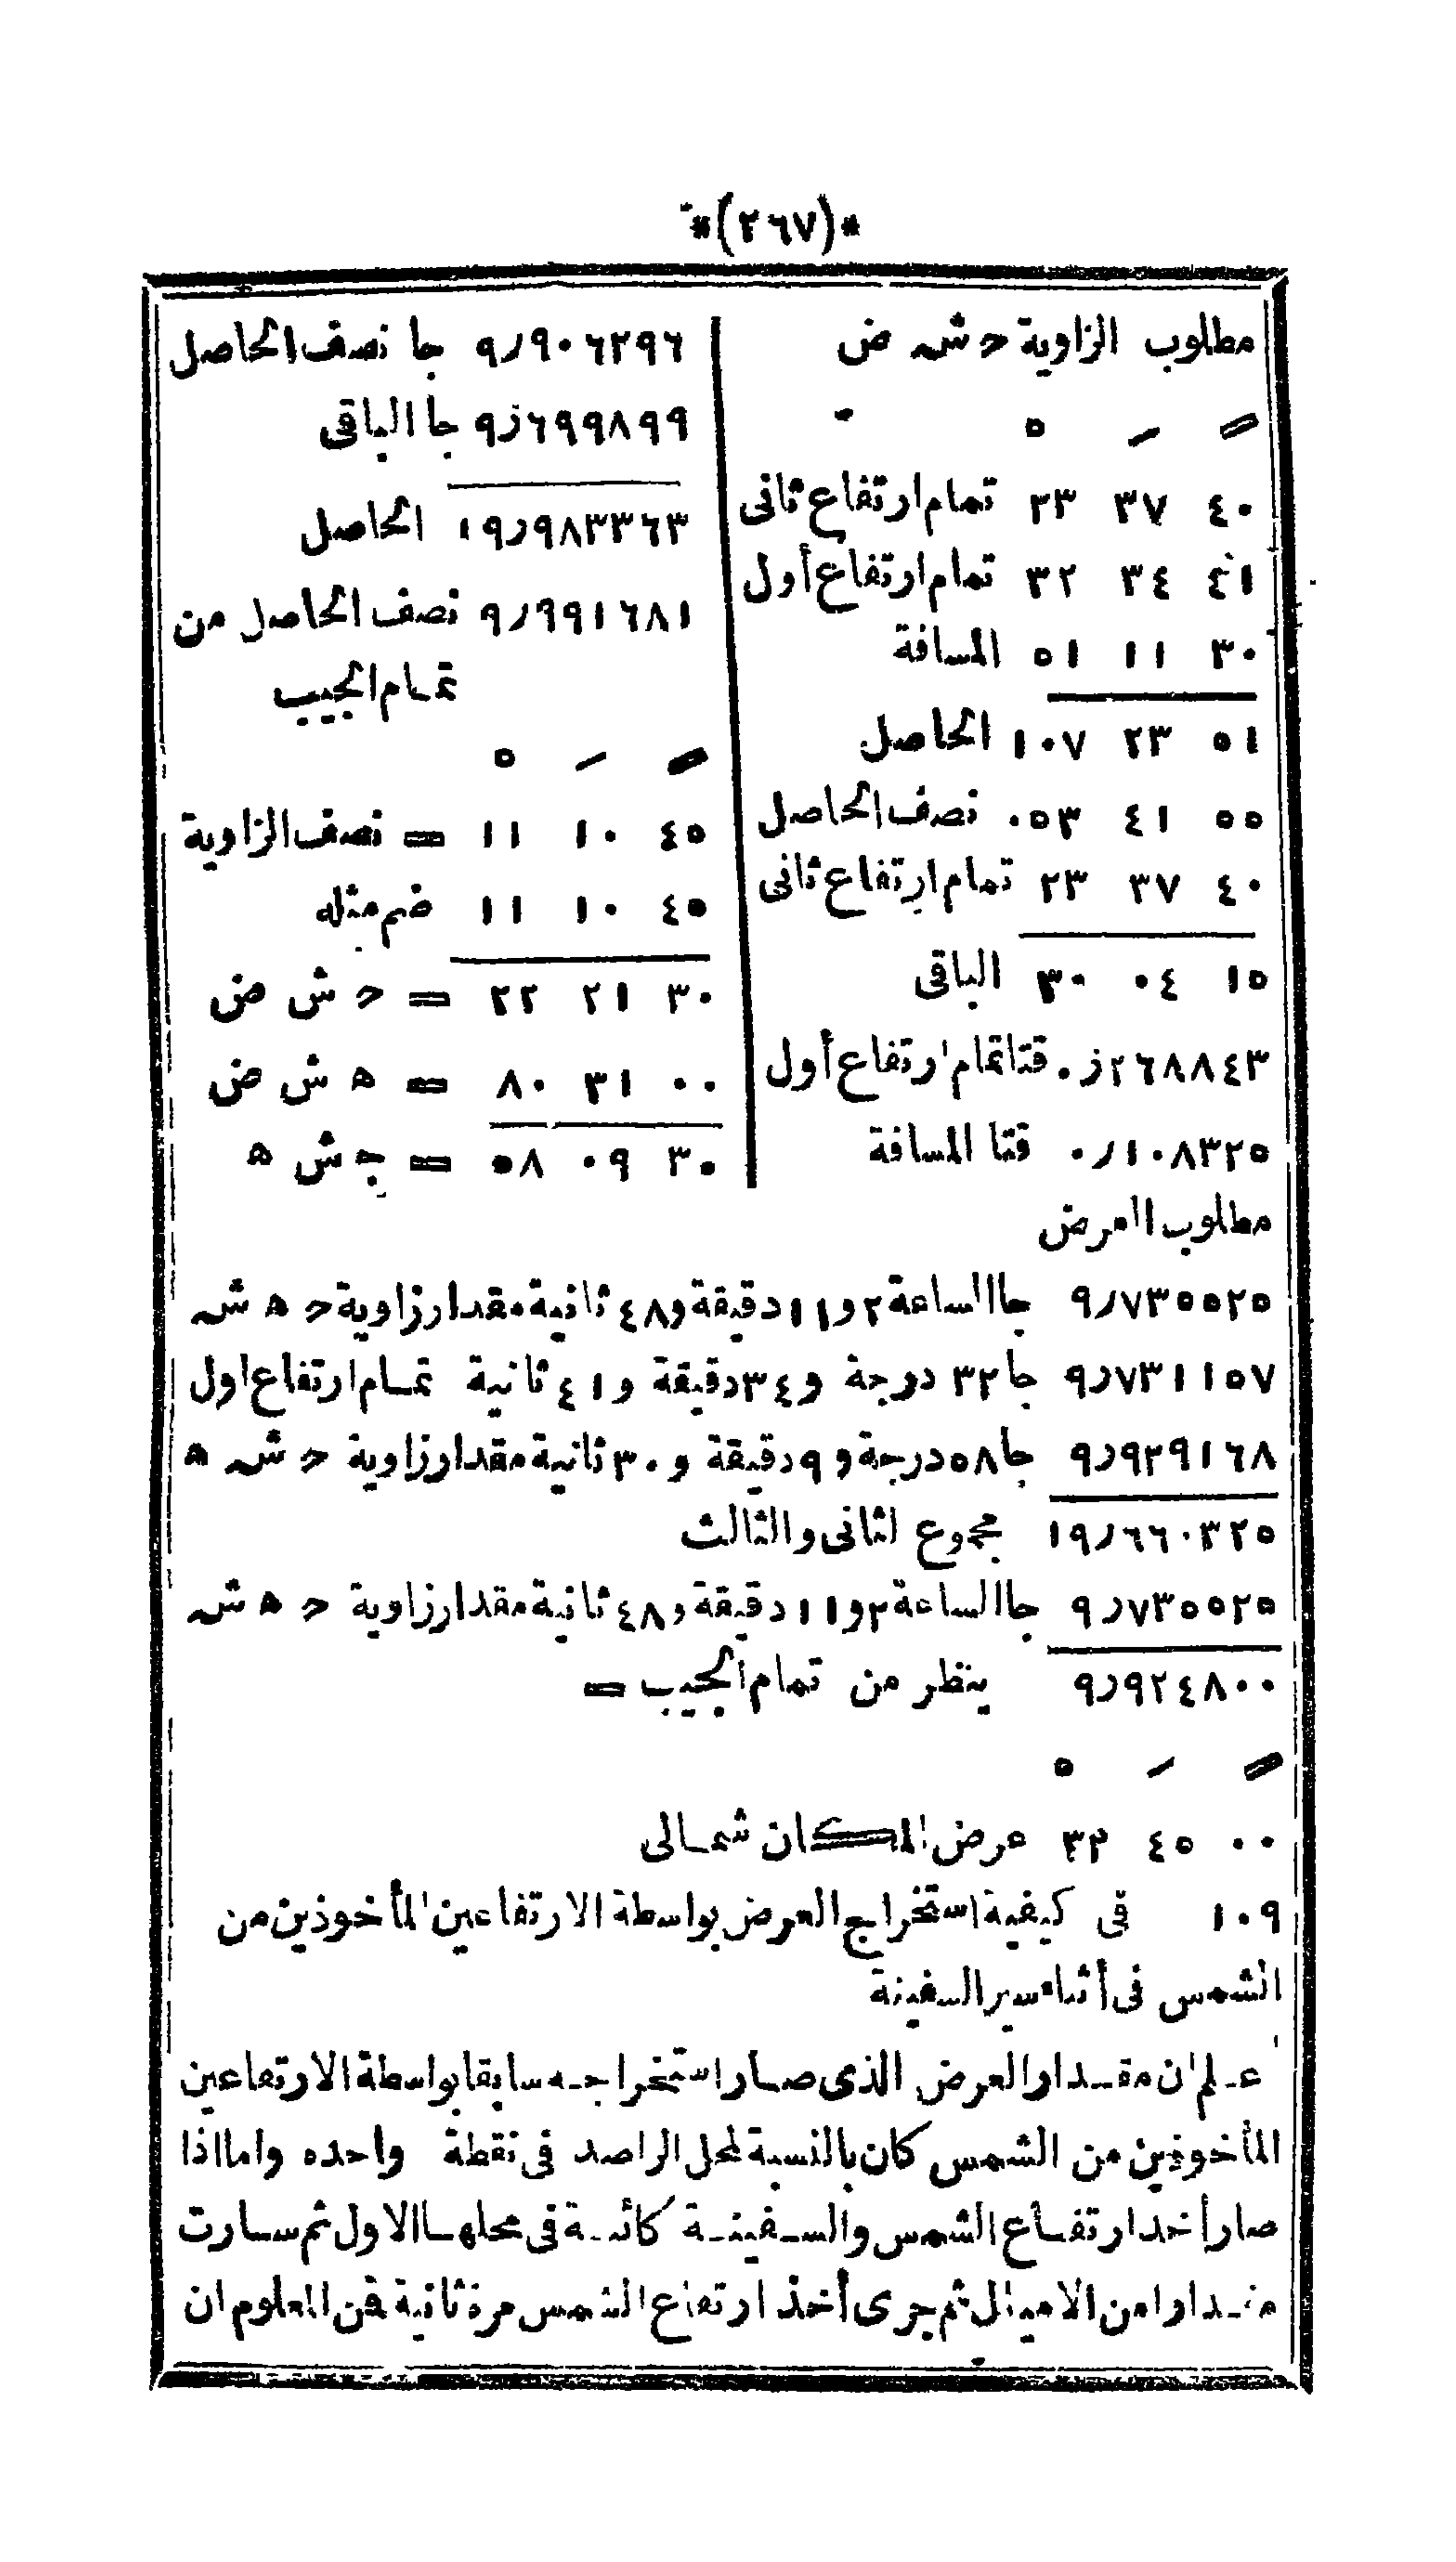 *(٢٦٧)*
مطلوب الزاوية ح ش ض
٤٠ ٣٧ ٢٣ تمام ارتفاع ثانى
٤١ ٣٤ ٣٢ تمام ارتفاع أول
٣٠ ١١ ٥١ المسافة
٥١ ٢٣ ١٠٧ الحاصل
٥٥ ٤١ ٠٥٣ نصف الحاصل
٤٠ ٣٧ ٢٣ تمام ارتفاع ثانى
١٥ ٠٤ ٣٠ الباقى
٠ر٢٦٨٨٤٣ قتا تمام ارتفاع أول
٠ر١٠٨٣٢٥ قتا المسافة
٩ر٩٠٦٢٩٦ جا نصف الحاصل
٩ر٦٩٩٨٩٩ جا الباقى
١٩ر٩٨٣٣٦٣ الحاصل
٩ر٩٩١٦٨١ نصف الحاصل من
تمام الجيب
٤٥ ١٠ ١١ = نصف الزاوية
٤٥ ١٠ ١١ ضم مثله
٣٠ ٢١ ٢٢ = ح ش ض
٠٠ ٣١ ٨٠ = ه ش ض
٣٠ ٠٩ ٥٨ = ج ش ه
مطلوب العرض
٩ر٧٣٥٥٢٥ جا الساعة ٢ و١١ دقيقة و٤٨ ثانية مقدار زاوية ح ه ش
٩ر٧٣١١٥٧ جا ٣٢ درجة و٣٤ دقيقة و٤١ ثانية تمام ارتفاع اول
٩ر٩٢٩١٦٨ جا ٥٨ درجة و٩ دقيقة و٣٠ ثانية مقدار زاوية ح ش ه
١٩ر٦٦٠٣٢٥ مجموع الثانى والثالث
٩ر٧٣٥٥٢٥ جا الساعة ٢ و١١ دقيقة و٤٨ ثانية مقدار زاوية ح ه ش
٩ر٩٢٤٨٠٠ ينظر من تمام الجيب =
٠٠ ٤٥ ٣٢ عرض المكان شمالى
١٠٩ فى كيفية استخراج العرض بواسطة الارتفاعين المأخوذين من
الشمس فى أثناء سير السفينة
اعلم ان مقدار العرض الذى صار استخراجه سابقا بواسطة الارتفاعين
المأخوذين من الشمس كان بالنسبة لمحل الراصد فى نقطة واحده واما اذا
صار أخذ ارتفاع الشمس والسفينة كائنة فى محلها الاول ثم سارت
مقدارا من الاميال ثم جرى أخذ ارتفاع الشمس مرة ثانية فمن المعلوم ان